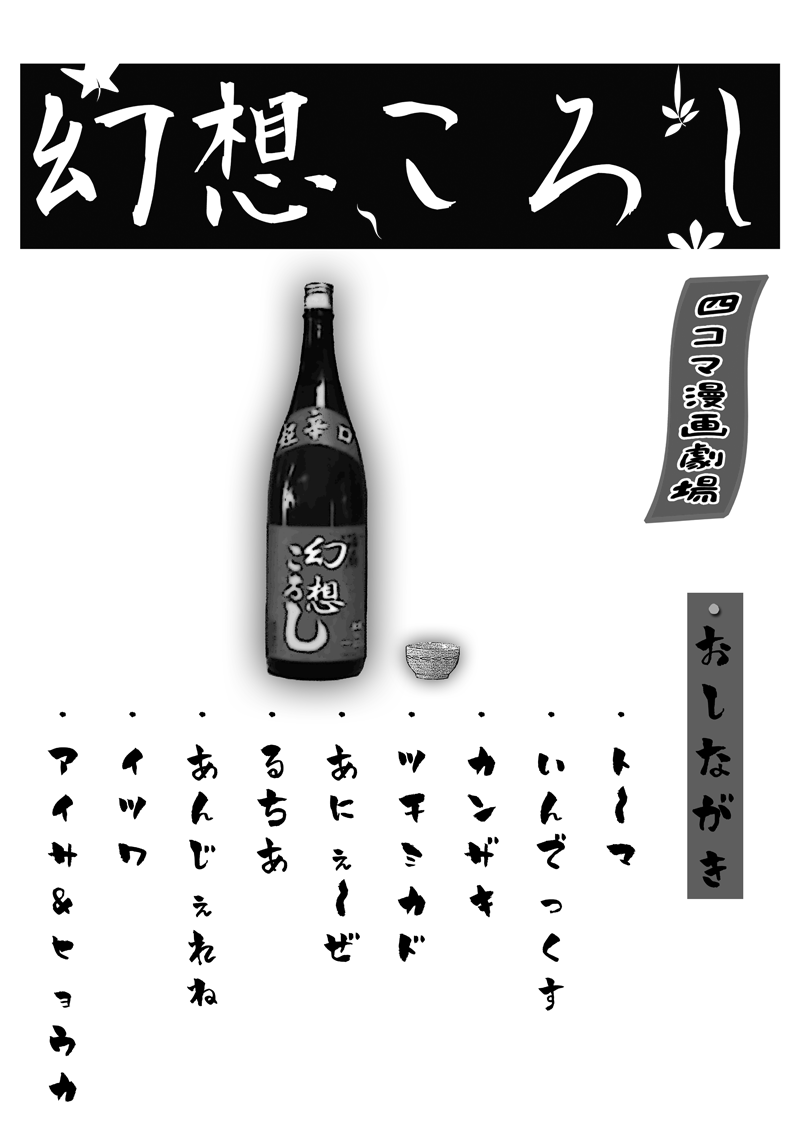 幻想ころし
四コマ漫画劇場
超辛口
幻想
ころし
おしながき
・トーマ
・いんでっくす
・カンザキ
・ツチミカド
・あにぇーぜ
・るちあ
・あんじぇれね
・イツワ
・アイサ&セョウカ